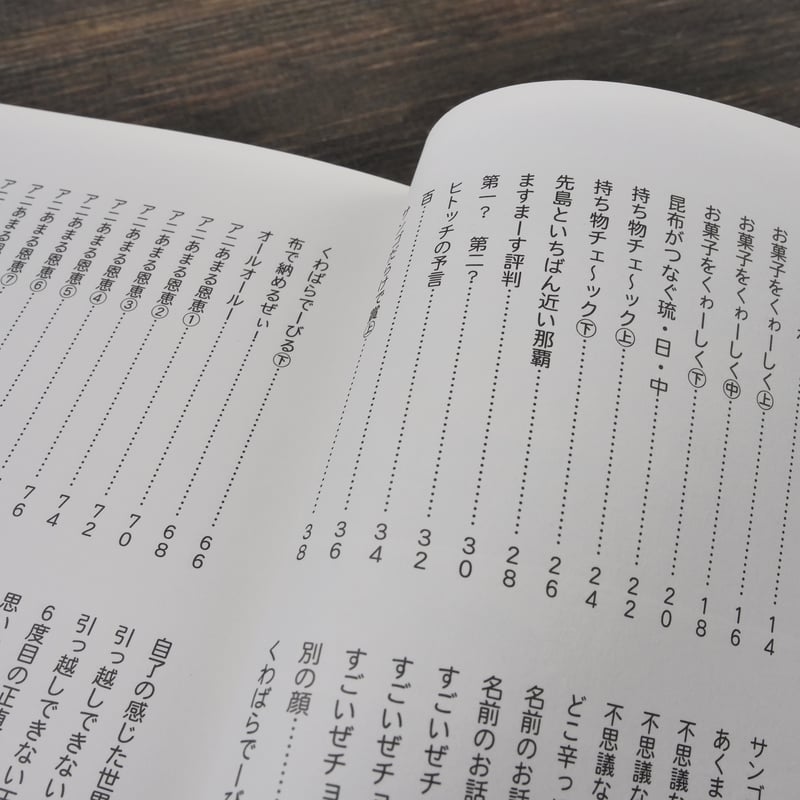 お菓子をくわーしく㊤……14
お菓子をくわーしく㊥……16
お菓子をくわーしく㊦……18
昆布がつなぐ琉・日・中……20
持ち物チェ〜ック㊤……22
持ち物チェ〜ック㊦……24
先島といちばん近い那覇……26
ますまーす評判……28
第一？ 第二？……30
ヒトッチの予言……32
……34
……36
……38
サンゴ
あくま
不思議な
不思議な
不思議な
どこ辛っ
名前のお話
名前のお話
すごいぜチ
すごいぜチョ
すごいぜチョ
別の顔……
くわばらでーび
くわばらでーびる㊦……66
布で納めるぜぃ……68
オールオールー……70
アニあまる恩恵①……72
アニあまる恩恵②……74
アニあまる恩恵③……76
アニあまる恩恵④
アニあまる恩恵⑤
アニあまる恩恵⑥
アニあまる恩恵⑦
自了の感じた世界
引っ越しできない
引っ越しできない
6度目の正直
思い